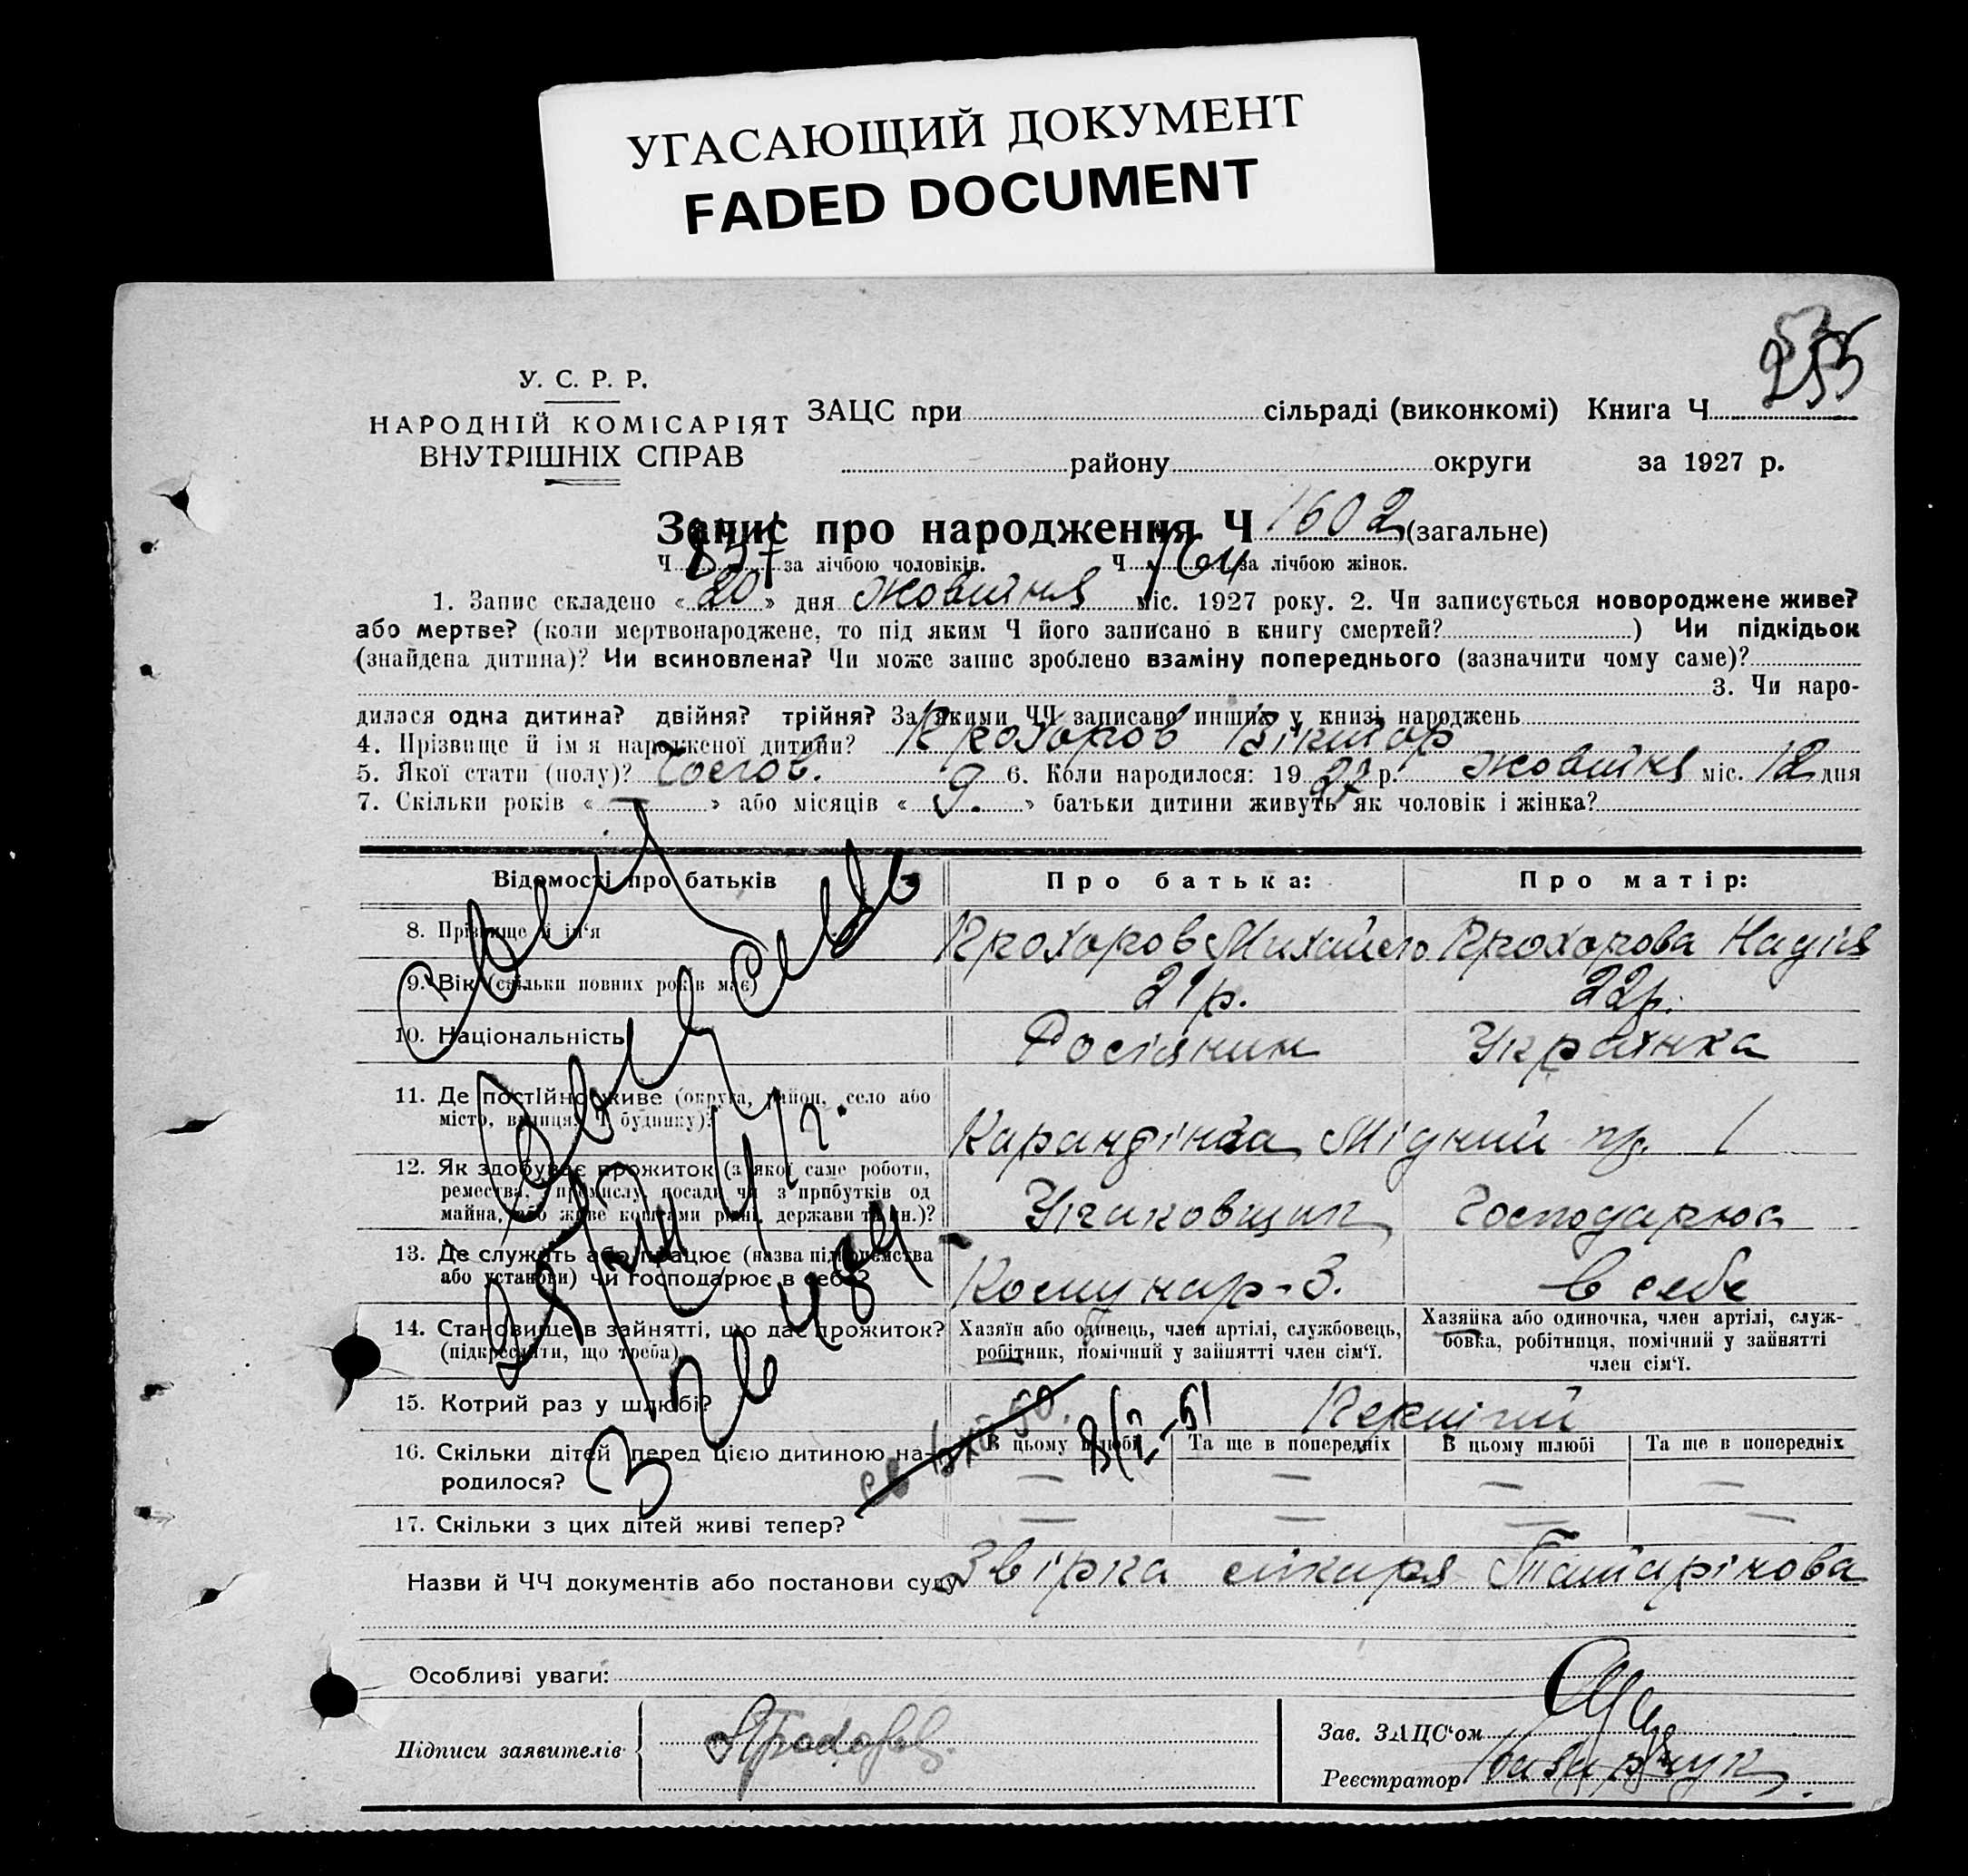 УГАСАЮЩИЙ ДОКУМЕНТ
FADED DOCUMENT
255
У. С. Р. Р.
НАРОДНІЙ КОМІСАРІЯТ
ВНУТРІШНІХ СПРАВ
ЗАЦС при сільраді (виконкомі) Книга Ч
району округи за 1927 р.
Запис про народження Ч 1602 (загальне)
Ч 837 за лічбою чоловіків. Ч 764 за лічбою жінок.
1. Запис складено « 20 » дня жовтня міс. 1927 року. 2. Чи записується новороджене живе?
або мертве? (коли мертвонароджене, то під яким Ч його записано в книгу смертей? ) Чи підкідьок
(знайдена дитина)? Чи всиновлена? Чи може запис зроблено взаміну попереднього (зазначити чому саме)?
3. Чи наро-
дилася одна дитина? двійня? трійня? За якими ЧЧ записано инших у книзі народжень
4. Прізвище й ім'я народженої дитини? Прохоров Віктор
5. Якої стати (полу)? Чолов. 6. Коли народилося: 1927 р. жовтня міс. 12 дня
7. Скільки років « — » або місяців « 9. » батьки дитини живуть як чоловік і жінка?
Відомості про батьків Про батька: Про матір:
8. Прізвище й ім'я Прохоров Михайло Прохорова Надія
9. Вік (скільки повних років має) 21 р. 22 р.
10. Національність Росіянин Українка
11. Де постійно живе (округа, район, село або
місто, вулиця, Ч будинку)? Мідний пр. 1
12. Як здобуває прожиток (з якої саме роботи,
ремества, промислу, посади чи з прибутків од
майна, або живе коштами рідні, держави та ин.)? Упаковщик Господарює
13. Де служить або працює (назва підприємства
або установи) чи господарює в себе? Комунар-З. в себе
14. Становище в зайнятті, що дає прожиток?
(підкреслити, що треба)
Хазяїн або одинець, член артілі, службовець,
робітник, помічний у зайнятті член сім'ї.
Хазяйка або одиночка, член артілі, служ-
бовка, робітниця, помічний у зайнятті
член сім'ї.
15. Котрий раз у шлюбі? Перший
16. Скільки дітей перед цією дитиною на-
родилося?
В цьому шлюбі Та ще в попередніх В цьому шлюбі Та ще в попередніх
— — — —
17. Скільки з цих дітей живі тепер? — — — —
Назви й ЧЧ документів або постанови суду Звірка лікаря Татарінова
Особливі уваги:
Підписи заявителів
Зав. ЗАЦС'ом
Реєстратор